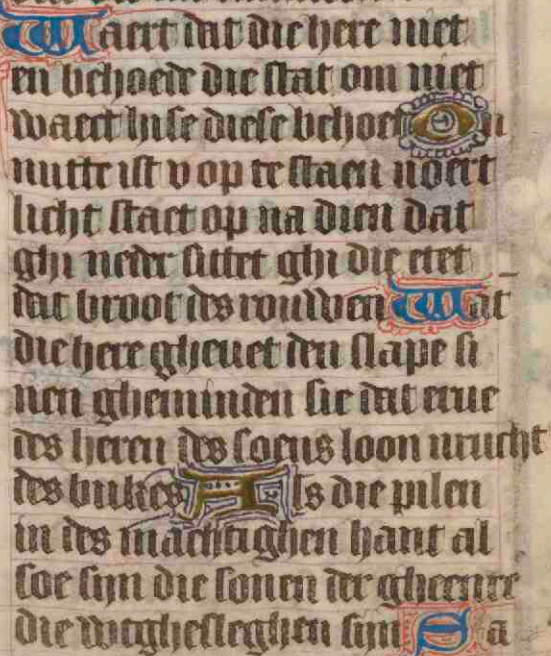 Waert dat die here niet
en behoede die stat om niet
waect hise diese behoet On
nutte ist v op te staen voert
licht staet op na dien dat
ghi neder sittet ghi die etet
dat broot des rouwen Wat
die here gheuet den slape si
nen gheminden sie dat erue
des heren des soens loon vrucht
des bukes Als die pilen
in des machtighen hant al
soe sijn die sonen der gheenre
die sijn